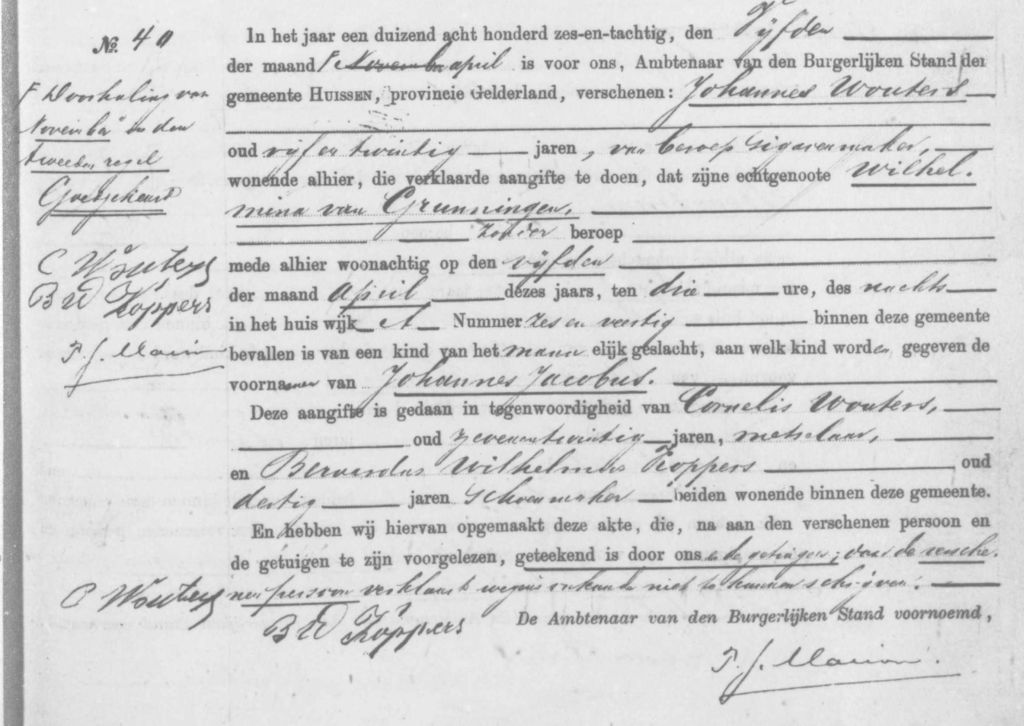 No. 40
In het jaar een duizend acht honderd zes-en-tachtig, den Vijfden
der maand November april is voor ons, Ambtenaar van den Burgerlijken Stand der
gemeente HUISSEN, provincie Gelderland, verschenen: Johannes Wouters
oud vijf en twintig jaren, van beroep Sigarenmaker,
wonende alhier, die verklaarde aangifte te doen, dat zijne echtgenoote Wilhel-
mina van Grunningen,
zonder beroep
mede alhier woonachtig op den vijfden
der maand April dezes jaars, ten drie ure, des nachts
in het huis wijk A Nummer zes en veertig binnen deze gemeente
bevallen is van een kind van het mannelijk geslacht, aan welk kind worden gegeven de
voornamen van Johannes Jacobus.
Deze aangifte is gedaan in tegenwoordigheid van Cornelis Wouters,
oud zevenentwintig jaren, metselaar,
en Bernardus Wilhelmus Koppers oud
dertig jaren Schoenmaker beiden wonende binnen deze gemeente.
En hebben wij hiervan opgemaakt deze akte, die, na aan den verschenen persoon en
de getuigen te zijn voorgelezen, geteekend is door ons en de getuigen; daar de versche-
nen persoon verklaarde wegens onkunde niet te kunnen schrijven.
De Ambtenaar van den Burgerlijken Stand voornoemd,
C Wouters
B W Koppers
Doorhaling van
November in den
tweeden regel
Goedgekeurd
C Wouters
B W Koppers